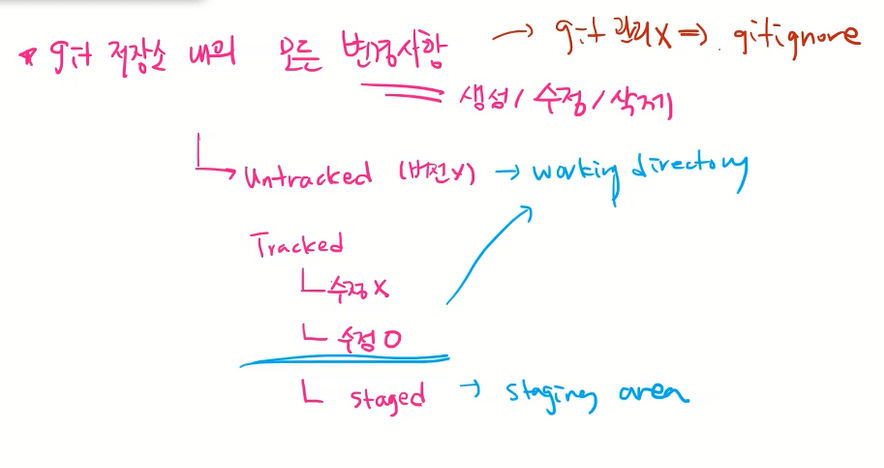 * git 저장소 내의 모든 변경사항 → git 관리 X ⇒ .gitignore
생성 / 수정 / 삭제
Untracked (버전X) → working directory
Tracked
수정 X
수정 O
staged → staging area